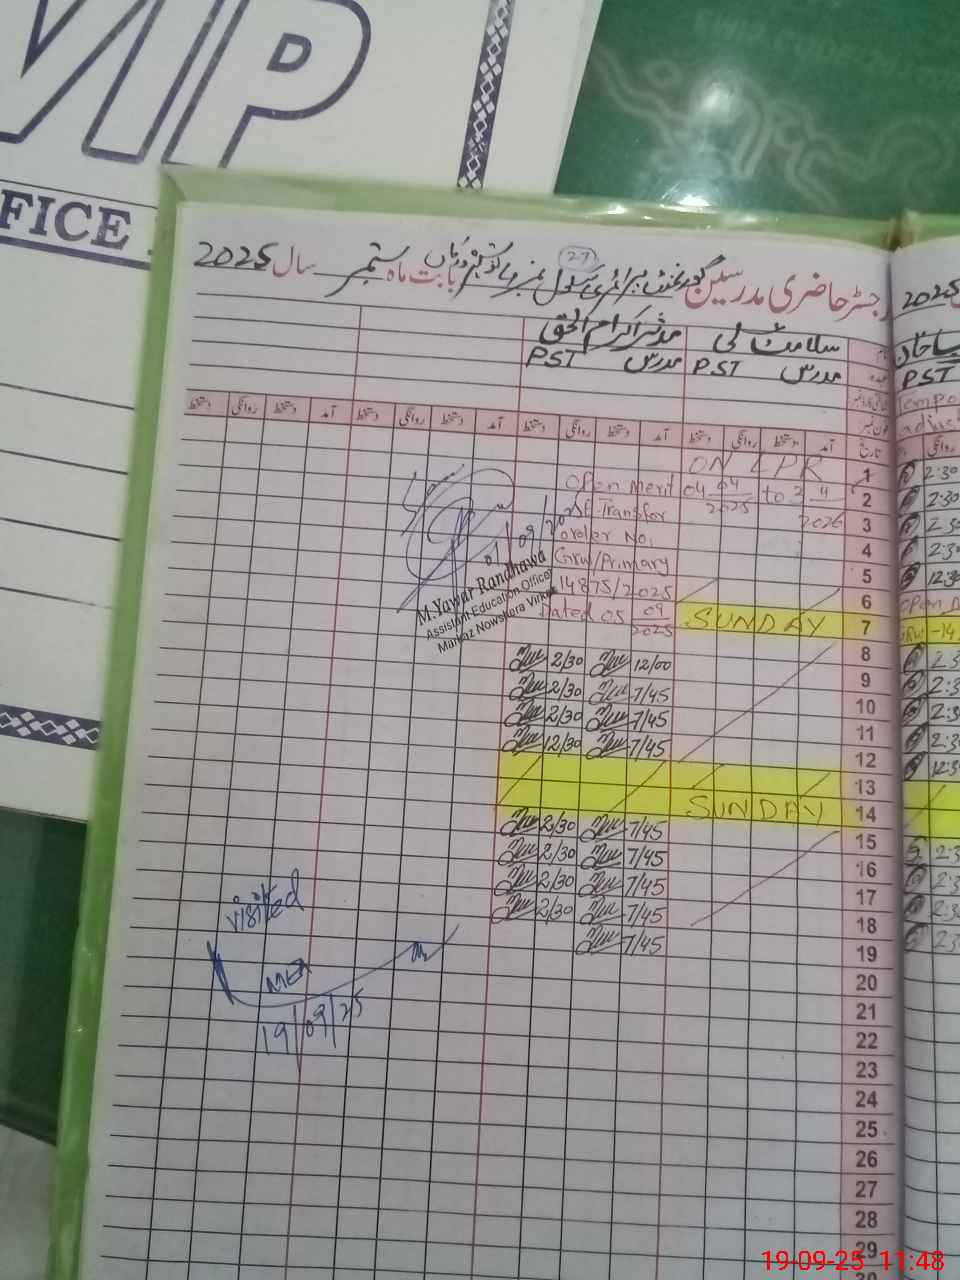 VIP
FICE
رجسٹر حاضری مدرسین گورنمنٹ پرائمری سکول نمبر بابت ماہ ستمبر سال 2025
27
سلامت علی
مدثر اکرام الحق
مدرس PST
مدرس PST
تاریخ آمد دستخط روانگی دستخط آمد دستخط روانگی دستخط آمد دستخط روانگی دستخط آمد دستخط روانگی دستخط
1 ON LPR
2 04 04/2025 to 3 4 2026 Open Merit
3 SE-Transfer
4 order No.
5 Grw/Primary
6 14875/2025
7 SUNDAY Dated 05 09/2025
01/09/20
M. Yawar Randhawa
Assistant Education Officer
Markaz Nowshera Virkan
8 12/00 2/30
9 7/45 2/30
10 7/45 2/30
11 7/45 2/30
12 7/45 12/30
13
14 SUNDAY
15 7/45 2/30
16 7/45 2/30
17 7/45 2/30
18 7/45 2/30
19 7/45
20
21
22
23
24
25
26
27
28
29
30
visited
MEA
19/09/25
2025
PST
Tempo
روانگی
2:30
2:30
2:30
2:30
12:30
2:3
2:3
2:3
2:3
12:3
2:3
2:3
2:3
2:3
19-09-25 11:48